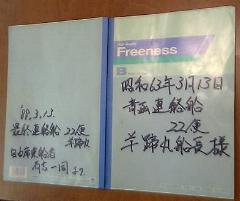 '88.3.13.
最終連絡船 22便
羊蹄丸
自由席乗船者
有志一同より
Freeness
B
昭和63年3月13日
青函連絡船
22便
羊蹄丸船長様